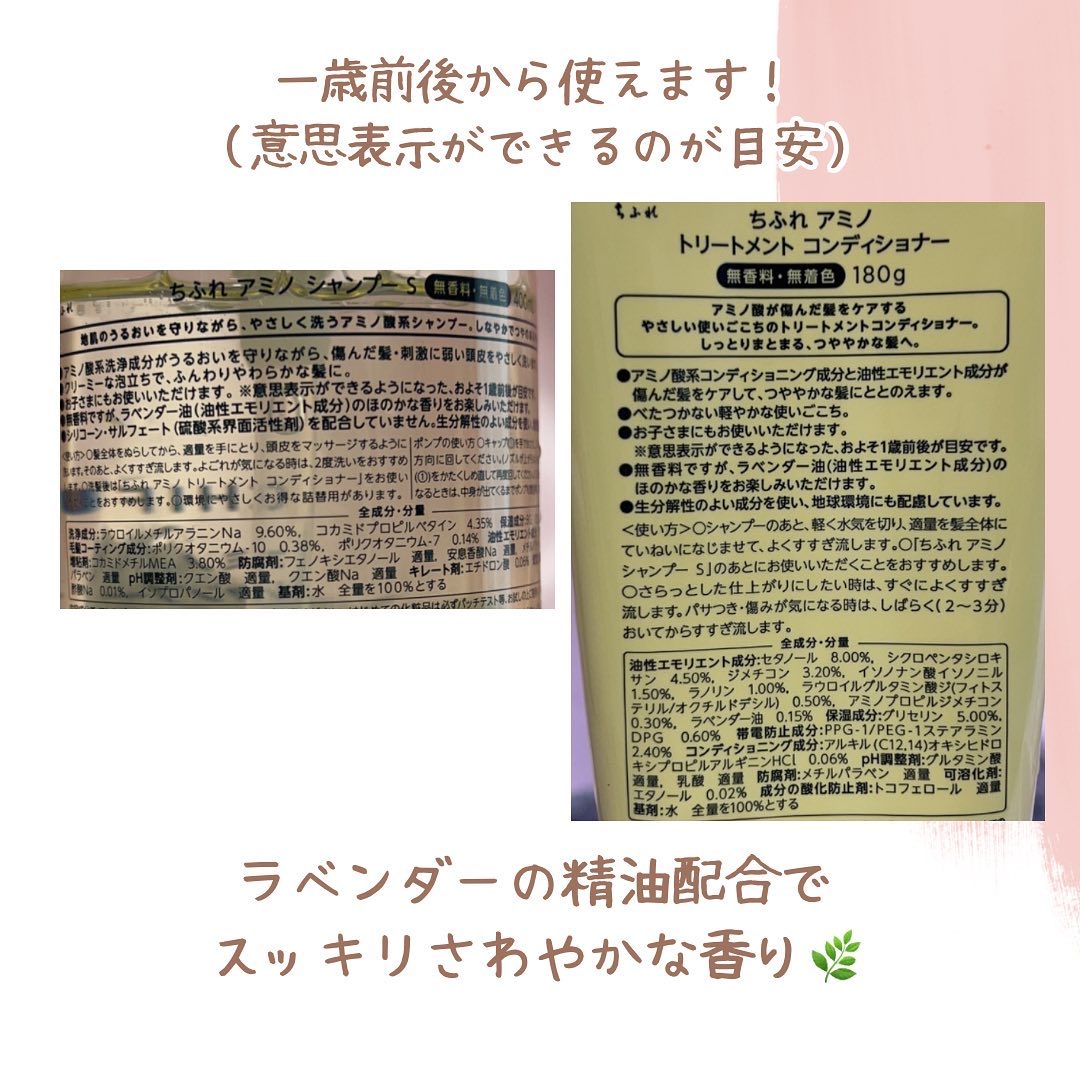 一歳前後から使えます！
（意思表示ができるのが目安）
ちふれ
ちふれ アミノ シャンプー S 無香料・無着色 400m
地肌のうるおいを守りながら、やさしく洗うアミノ酸系シャンプー。しなやかでつやの
●アミノ酸系洗浄成分がうるおいを守りながら、傷んだ髪・刺激に弱い頭皮をやさしく洗い
●クリーミーな泡立ちで、ふんわりやわらかな髪に。
●お子さまにもお使いいただけます。※意思表示ができるようになった、およそ1歳前後が目安です。
●無香料ですが、ラベンダー油（油性エモリエント成分）のほのかな香りをお楽しみいただけます。
●シリコーン・サルフェート（硫酸系界面活性剤）を配合していません。生分解性のよい成分を使い、
＜使い方＞○髪全体をぬらしてから、適量を手にとり、頭皮をマッサージするように
ます。そのあと、よくすすぎ流します。よごれが気になる時は、2度洗いをおすすめ
○洗髪後は「ちふれ アミノ トリートメント コンディショナー」をお使い
ことをおすすめします。○環境にやさしくお得な詰替用があります。
ポンプの使い方 ○キャップ
方向に回してください。
をかたくしめ直して再度回してください
なるときは、中身が出てくるまで
全成分・分量
洗浄成分:ラウロイルメチルアラニンNa 9.60%, コカミドプロピルベタイン 4.35% 保湿成分:
毛髪コーティング成分:ポリクオタニウム-10 0.38%, ポリクオタニウム-7 0.14% 油性エモリエント成分
増粘剤:コカミドメチルMEA 3.80% 防腐剤:フェノキシエタノール 適量, 安息香酸Na 適量,
パラベン 適量 pH調整剤:クエン酸 適量, クエン酸Na 適量 キレート剤:エチドロン酸 0.06%
酢酸Na 0.01%, イソプロパノール 適量 基剤:水 全量を100%とする
の化粧品は必ずパッチテスト等、お試しの上
ちふれ
ちふれ アミノ
トリートメント コンディショナー
無香料・無着色 180g
アミノ酸が傷んだ髪をケアする
やさしい使いごこちのトリートメントコンディショナー。
しっとりまとまる、つややかな髪へ。
●アミノ酸系コンディショニング成分と油性エモリエント成分が
傷んだ髪をケアして、つややかな髪にととのえます。
●べたつかない軽やかな使いごこち。
●お子さまにもお使いいただけます。
※意思表示ができるようになった、およそ1歳前後が目安です。
●無香料ですが、ラベンダー油（油性エモリエント成分）の
ほのかな香りをお楽しみいただけます。
●生分解性のよい成分を使い、地球環境にも配慮しています。
＜使い方＞○シャンプーのあと、軽く水気を切り、適量を髪全体に
ていねいになじませて、よくすすぎ流します。○「ちふれ アミノ
シャンプー S」のあとにお使いいただくことをおすすめします。
○さらっとした仕上がりにしたい時は、すぐによくすすぎ
流します。パサつき・傷みが気になる時は、しばらく（2～3分）
おいてからすすぎ流します。
全成分・分量
油性エモリエント成分:セタノール 8.00%, シクロペンタシロキ
サン 4.50%, ジメチコン 3.20%, イソノナン酸イソノニル
1.50%, ラノリン 1.00%, ラウロイルグルタミン酸ジ(フィトス
テリル/オクチルドデシル) 0.50%, アミノプロピルジメチコン
0.30%, ラベンダー油 0.15% 保湿成分:グリセリン 5.00%,
DPG 0.60% 帯電防止成分:PPG-1/PEG-1ステアラミン
2.40% コンディショニング成分:アルキル(C12,14)オキシヒドロ
キシプロピルアルギニンHCl 0.06% pH調整剤:グルタミン酸
適量, 乳酸 適量 防腐剤:メチルパラベン 適量 可溶化剤:
エタノール 0.02% 成分の酸化防止剤:トコフェロール 適量
基剤:水 全量を100%とする
ラベンダーの精油配合で
スッキリさわやかな香り🌿